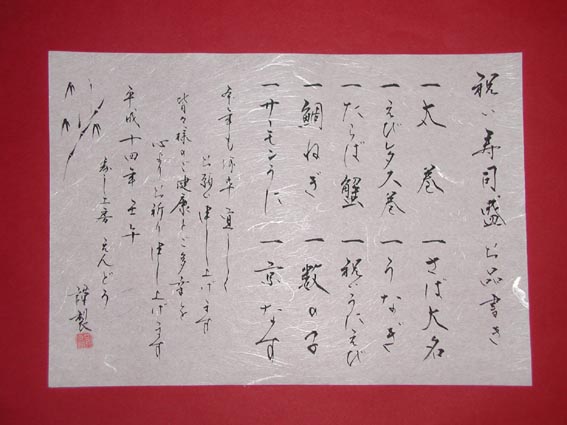 祝い寿司盛お品書き
一太巻 一さば大名
一えびレタス巻 一うなぎ
一たらば蟹 一祝いうにえび
一鯛ねぎ 一数の子
一サーモンうに 一京なす
本年も何卒宜しく
お願い申し上げます
皆々様のご健康とご多幸を
心よりお祈り申し上げます
平成十四年 壬午
寿し上喜 えんどう
謹製